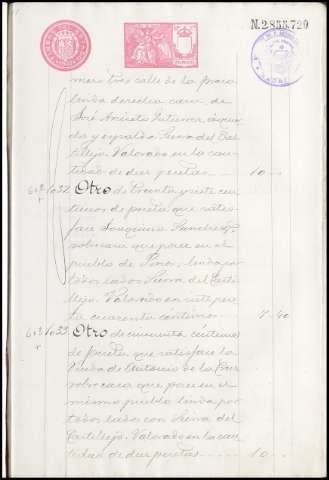 N.2.855.729
mero tres calle de la
linda derecha casa de
José Aniceto Gutierrez, izquier
da y espalda Sierra del Cas
tillejo. Valorado en la can
tidad de diez pesetas 10
Otro de treinta y siete cen
timos de peseta que satis
face Joaquina Sanchez
sobre casa que posee en el
pueblo de Pinos, linda por
todos lados Sierra del Casti
llejo. Valorado en siete pese
tas cuarenta céntimos 7-40
Otro de cincuenta céntimos
de peseta que satisface la
Viuda de Antonio de la Cruz
sobre casa que posee en el
mismo pueblo linda por
todos lados con Sierra del
Castillejo. Valorado en la can
tidad de diez pesetas 10